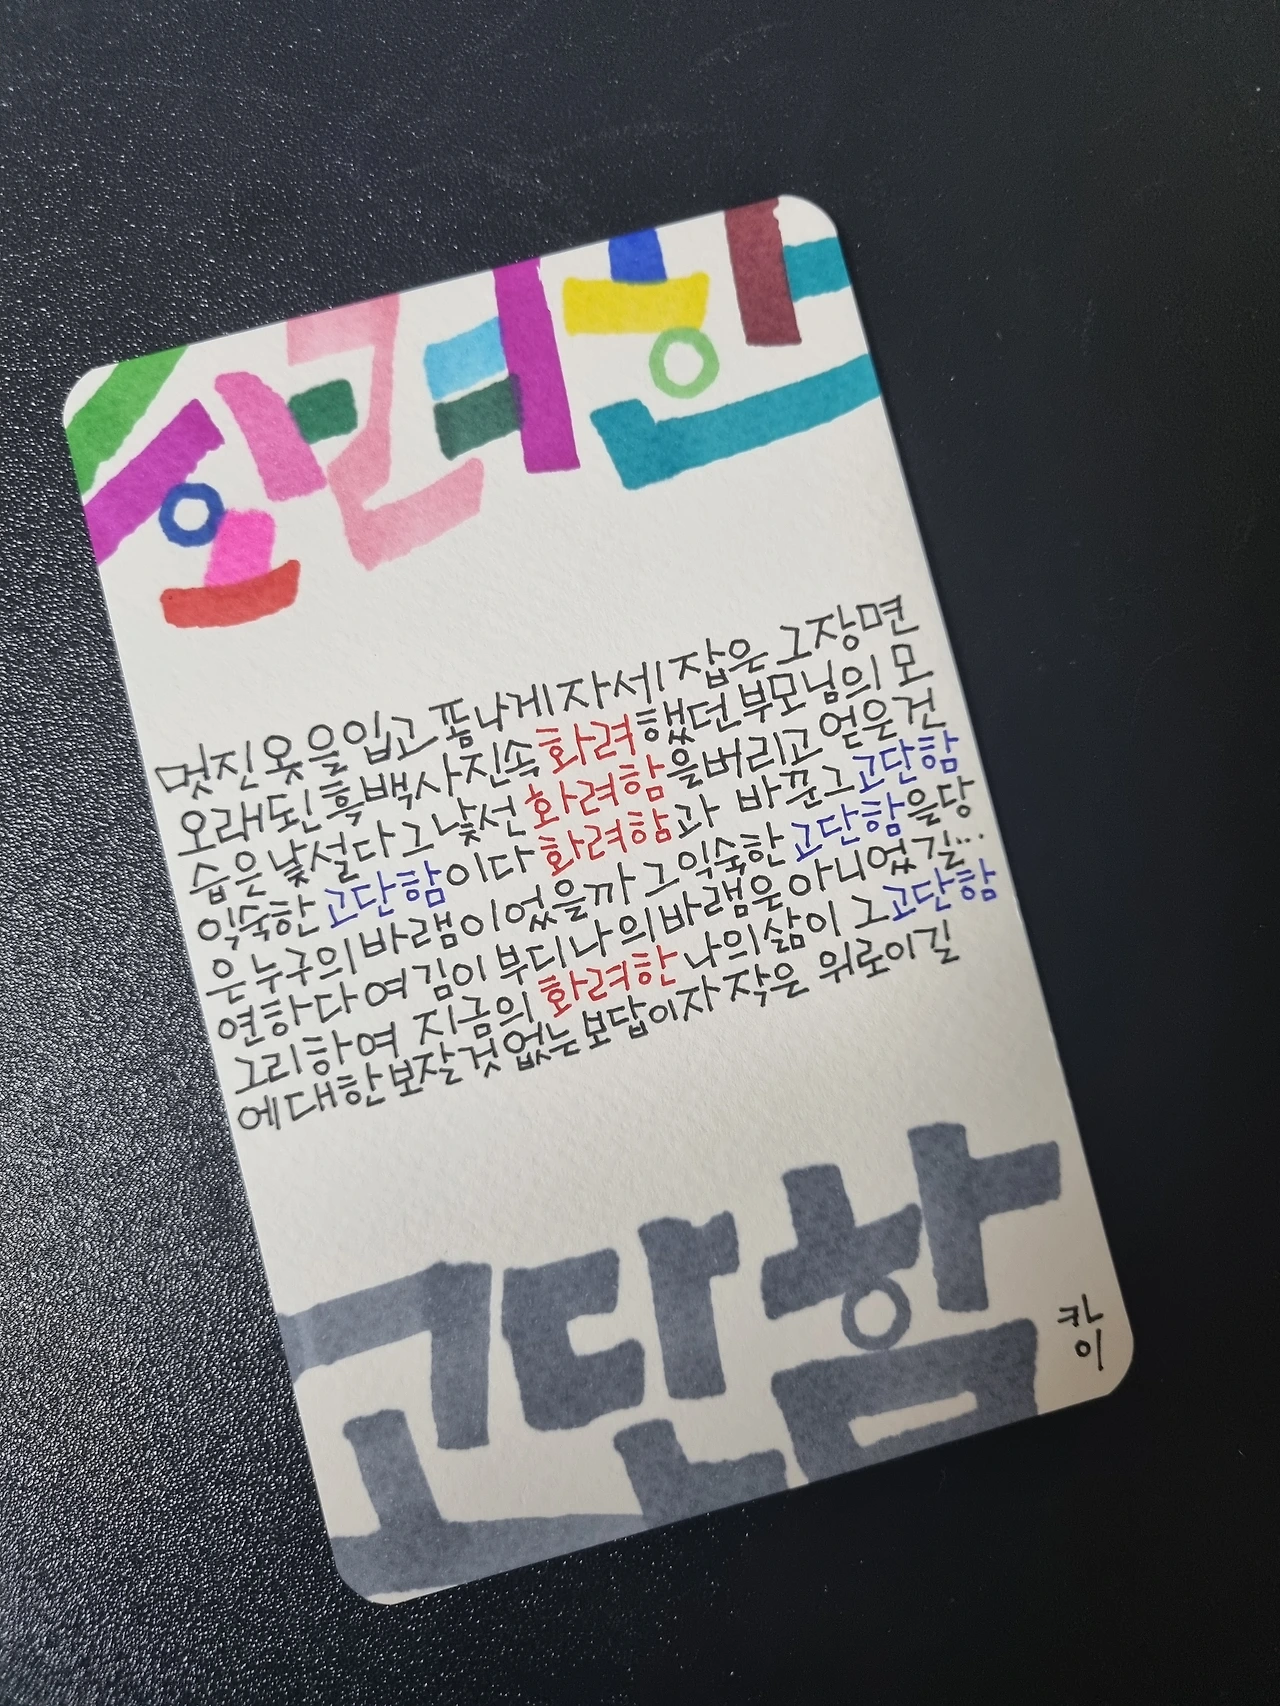 화려한
멋진 옷을 입고 폼나게 자세 잡은 그 장면
오래된 흑백사진 속 화려했던 부모님의 모
습은 낯설다 그 낯선 화려함을 버리고 얻은 건
익숙한 고단함이다 화려함과 바꾼 그 고단함
은 누구의 바램이었을까 그 익숙한 고단함을 당
연하다 여김이 부디 나의 바램은 아니었길...
그리하여 지금의 화려한 나의 삶이 그 고단함
에 대한 보잘것 없는 보답이자 작은 위로이길
고단함
카이